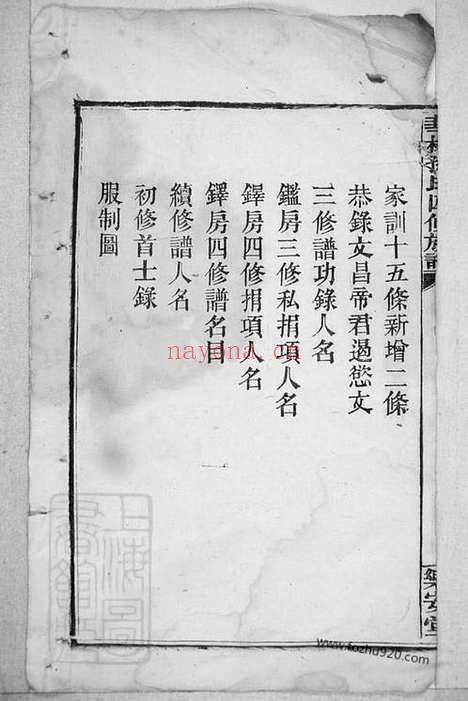 家訓十五條新增二條
恭錄文昌帝君遏慾文
三修譜功錄人名
鑑房三修私捐項人名
鐸房四修捐項人名
鐸房四修譜名目
續修譜人名
初修首士錄
服制圖
氏四修族譜
樂安堂
nayona.cn
上海圖
www.fozhu920.com